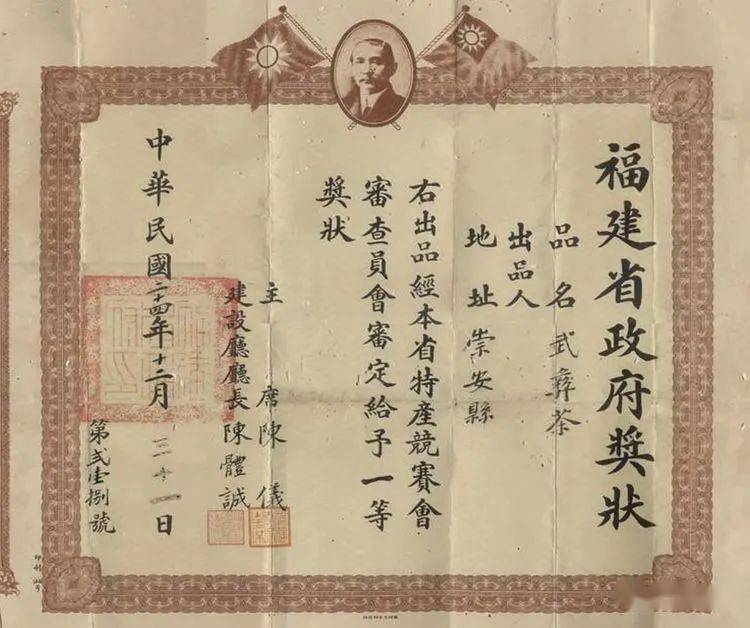 福建省政府獎狀
品名 武彝茶
出品人
地址 崇安縣
右出品經本省特產競賽會
審查員會審定給予一等
獎狀
主席 陳儀
建設廳廳長 陳體誠
中華民國二十四年十二月三十一日
第弍壹捌號